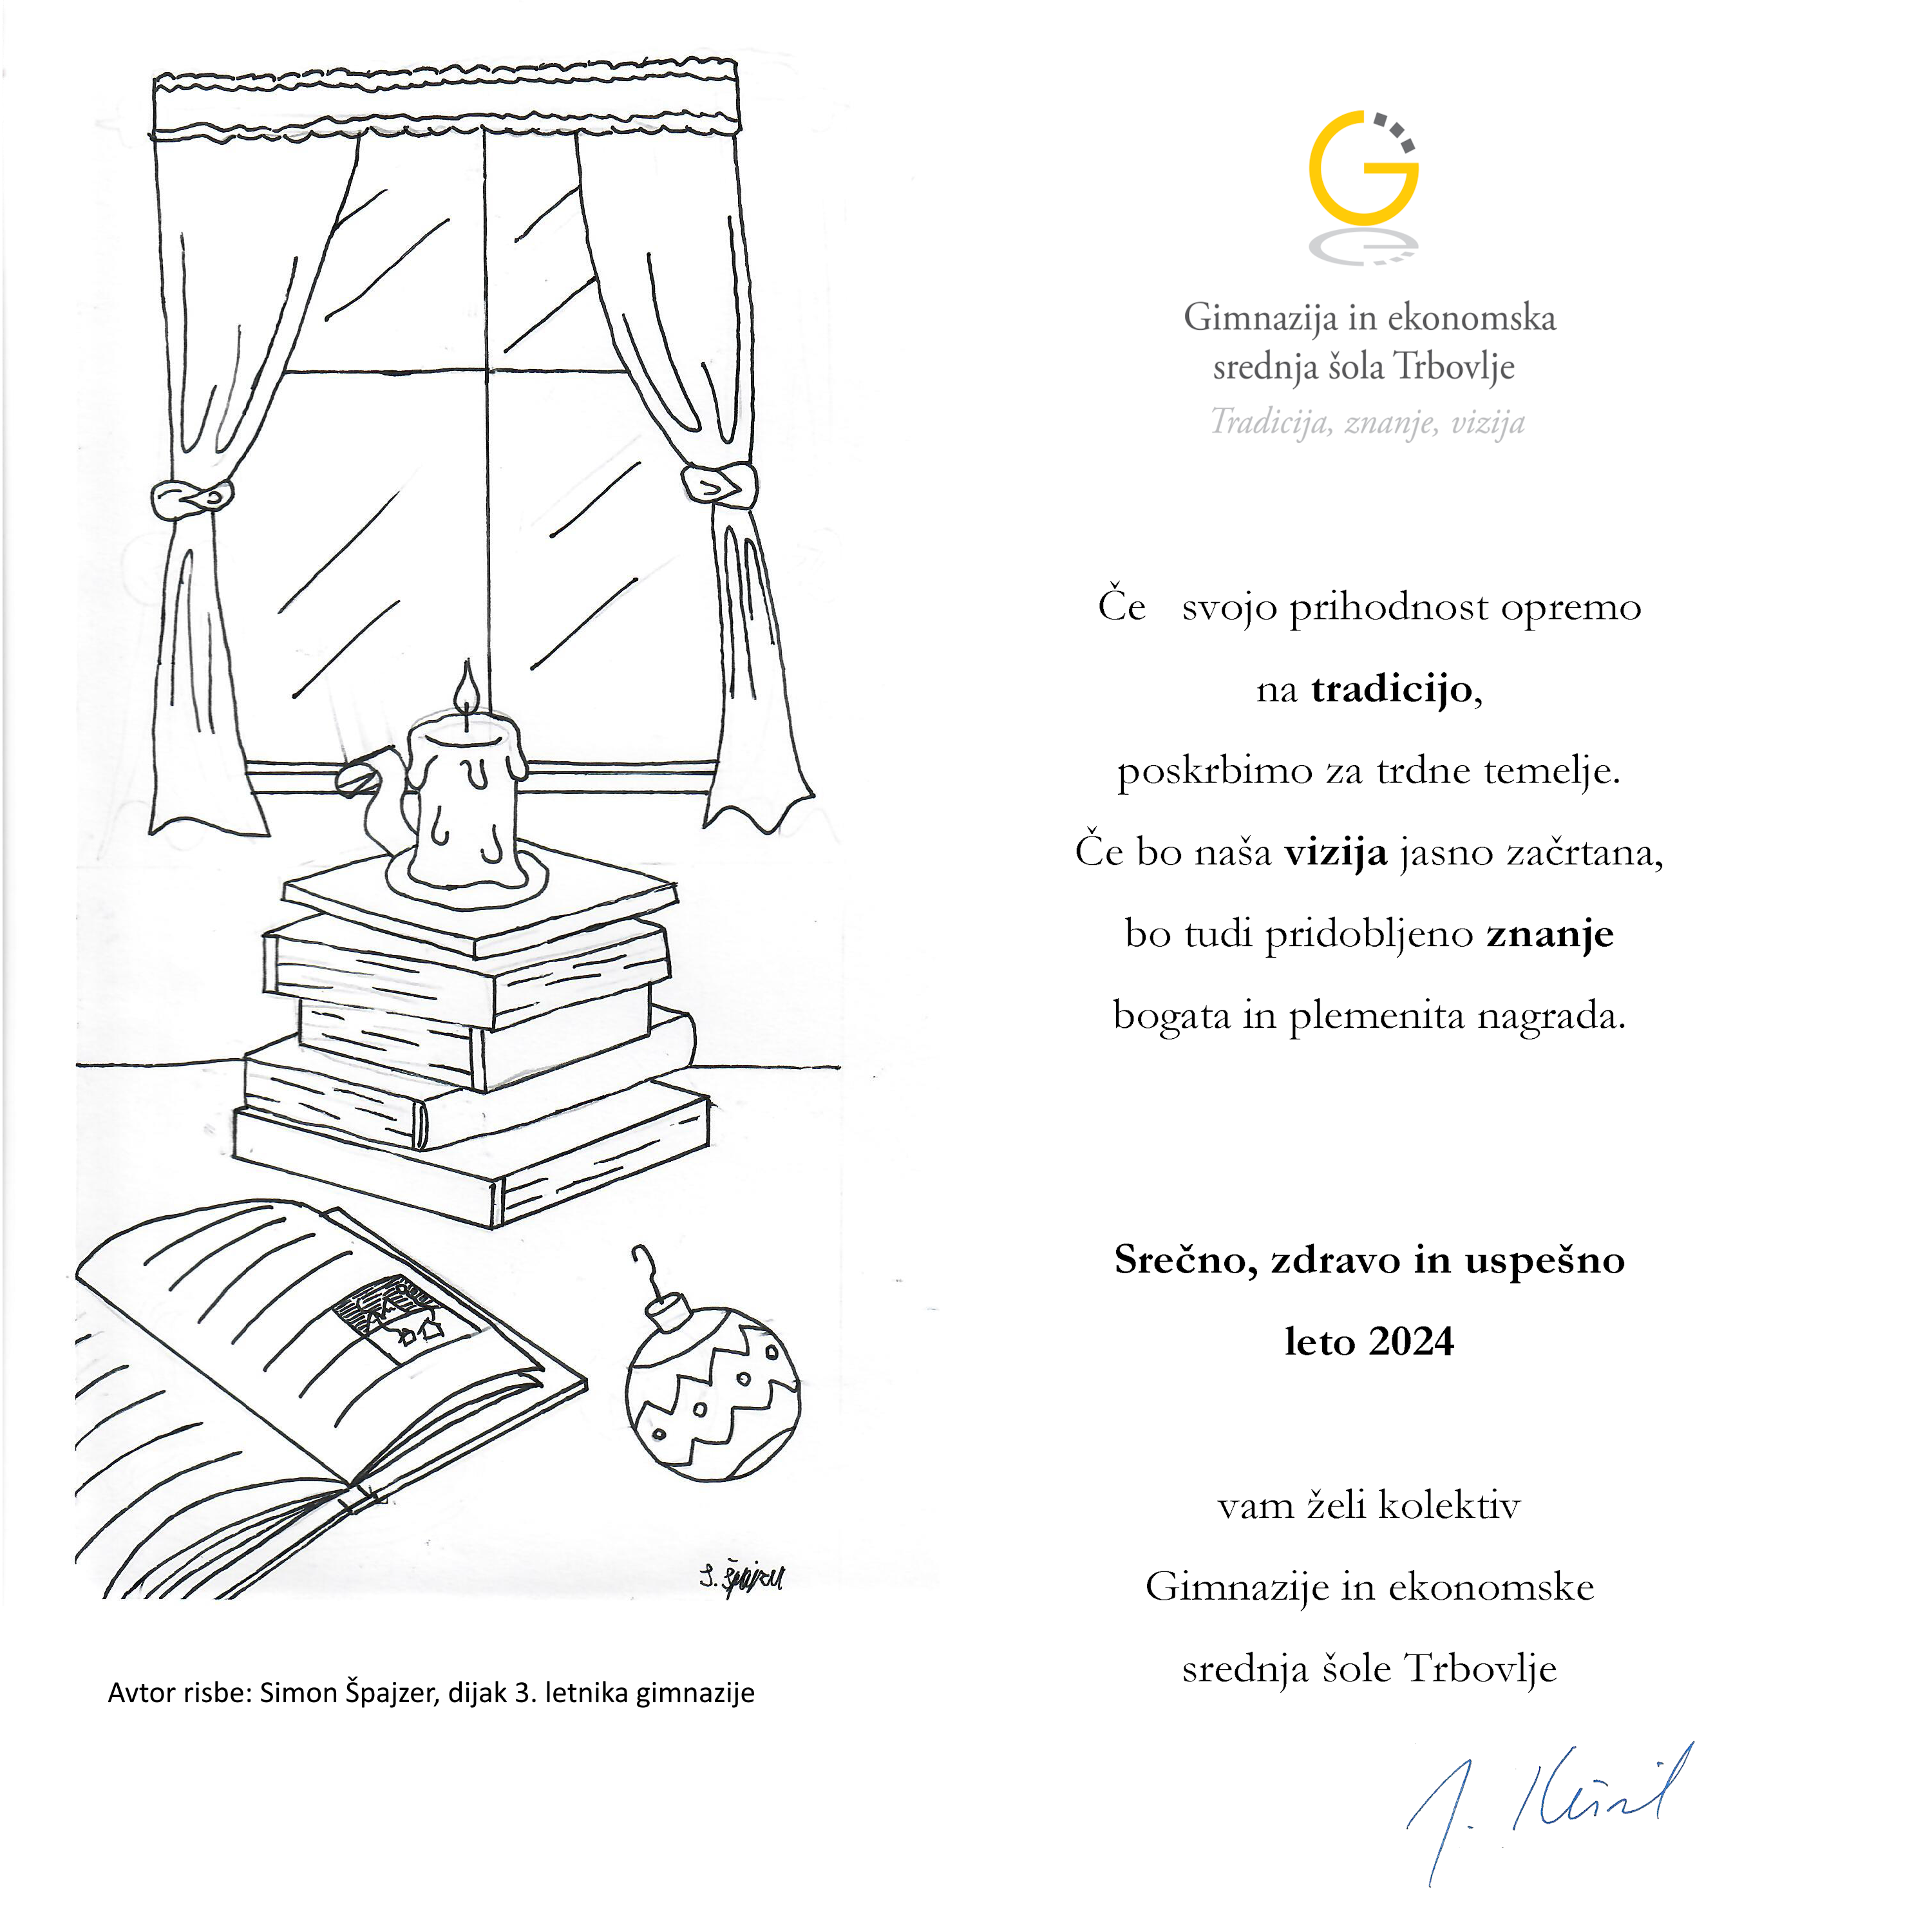 Gimnazija in ekonomska
srednja šola Trbovlje
Tradicija, znanje, vizija
Če svojo prihodnost opremo
na tradicijo,
poskrbimo za trdne temelje.
Če bo naša vizija jasno začrtana,
bo tudi pridobljeno znanje
bogata in plemenita nagrada.
Srečno, zdravo in uspešno
leto 2024
vam želi kolektiv
Gimnazije in ekonomske
srednja šole Trbovlje
S. Špajzer
Avtor risbe: Simon Špajzer, dijak 3. letnika gimnazije